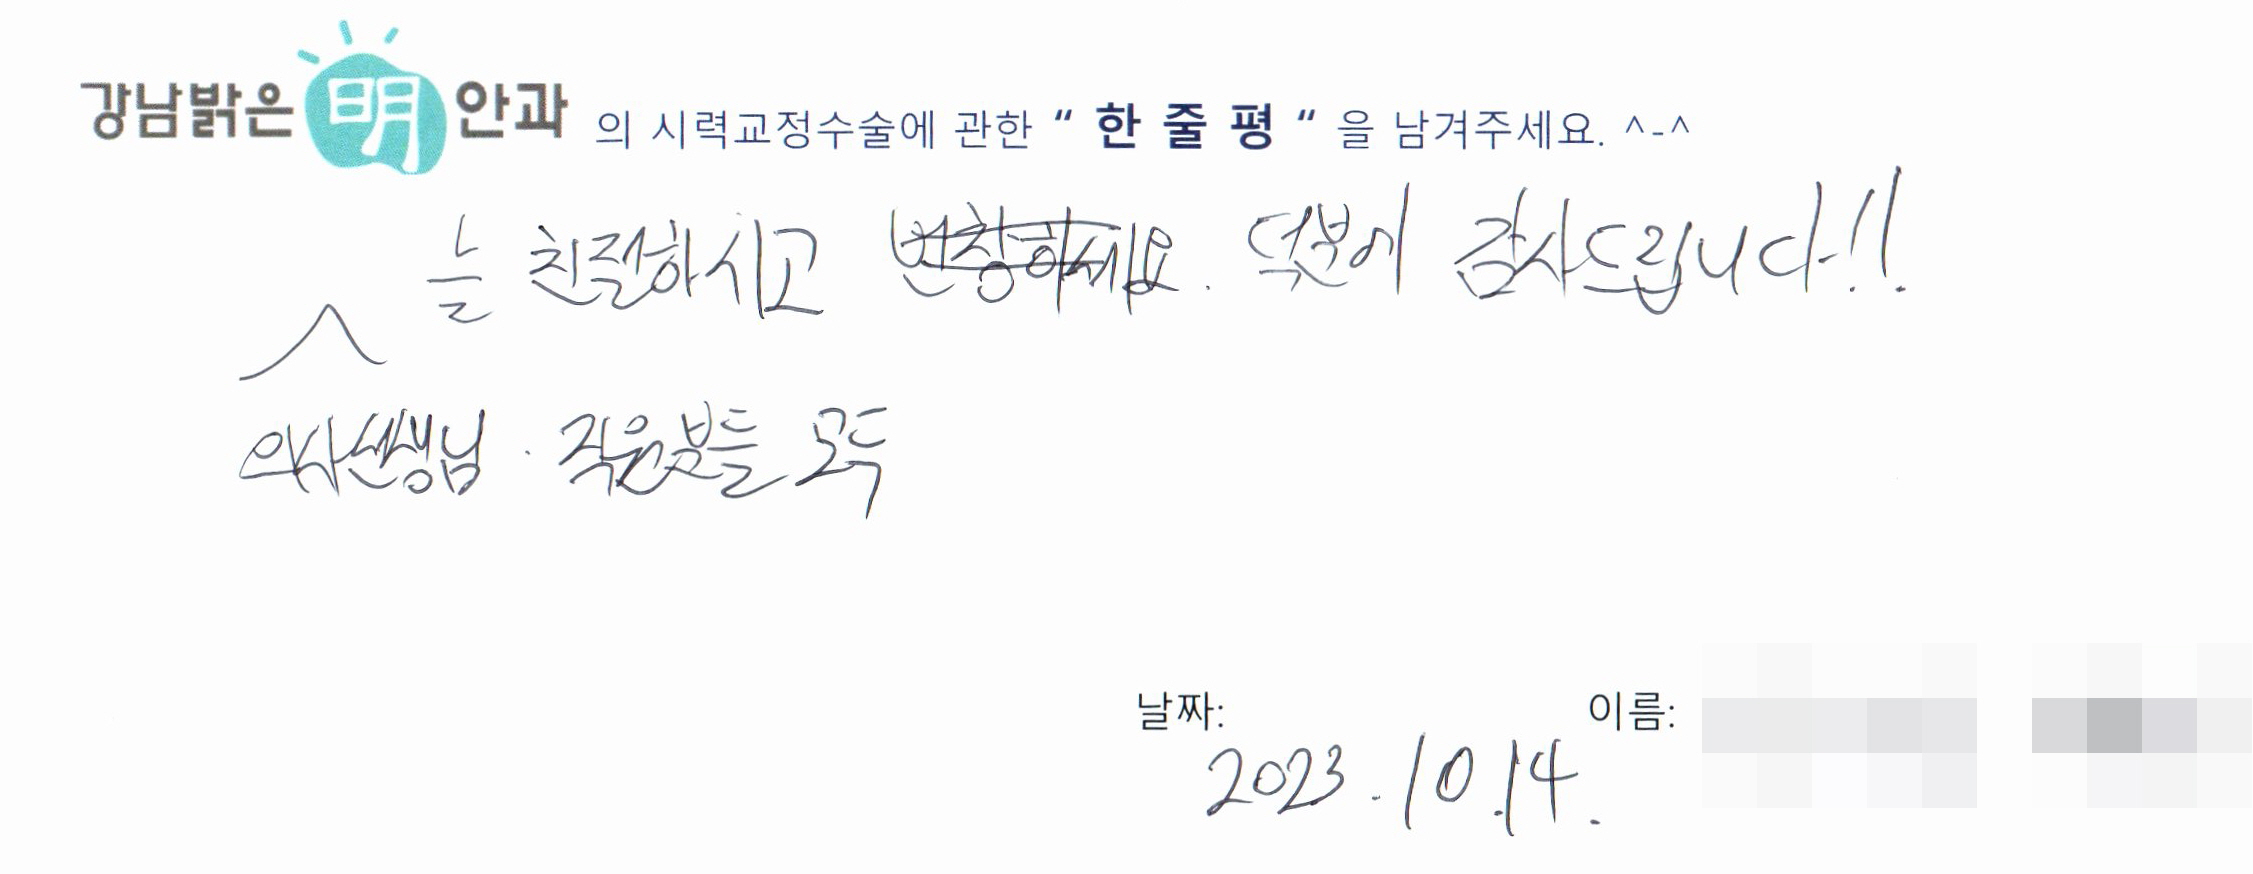 강남밝은明안과 의 시력교정수술에 관한 “ 한 줄 평 “ 을 남겨주세요. ^-^
늘 친절하시고 덕분에 감사드립니다!!
의사선생님 · 직원분들 모두
날짜: 이름:
2023.10.14.